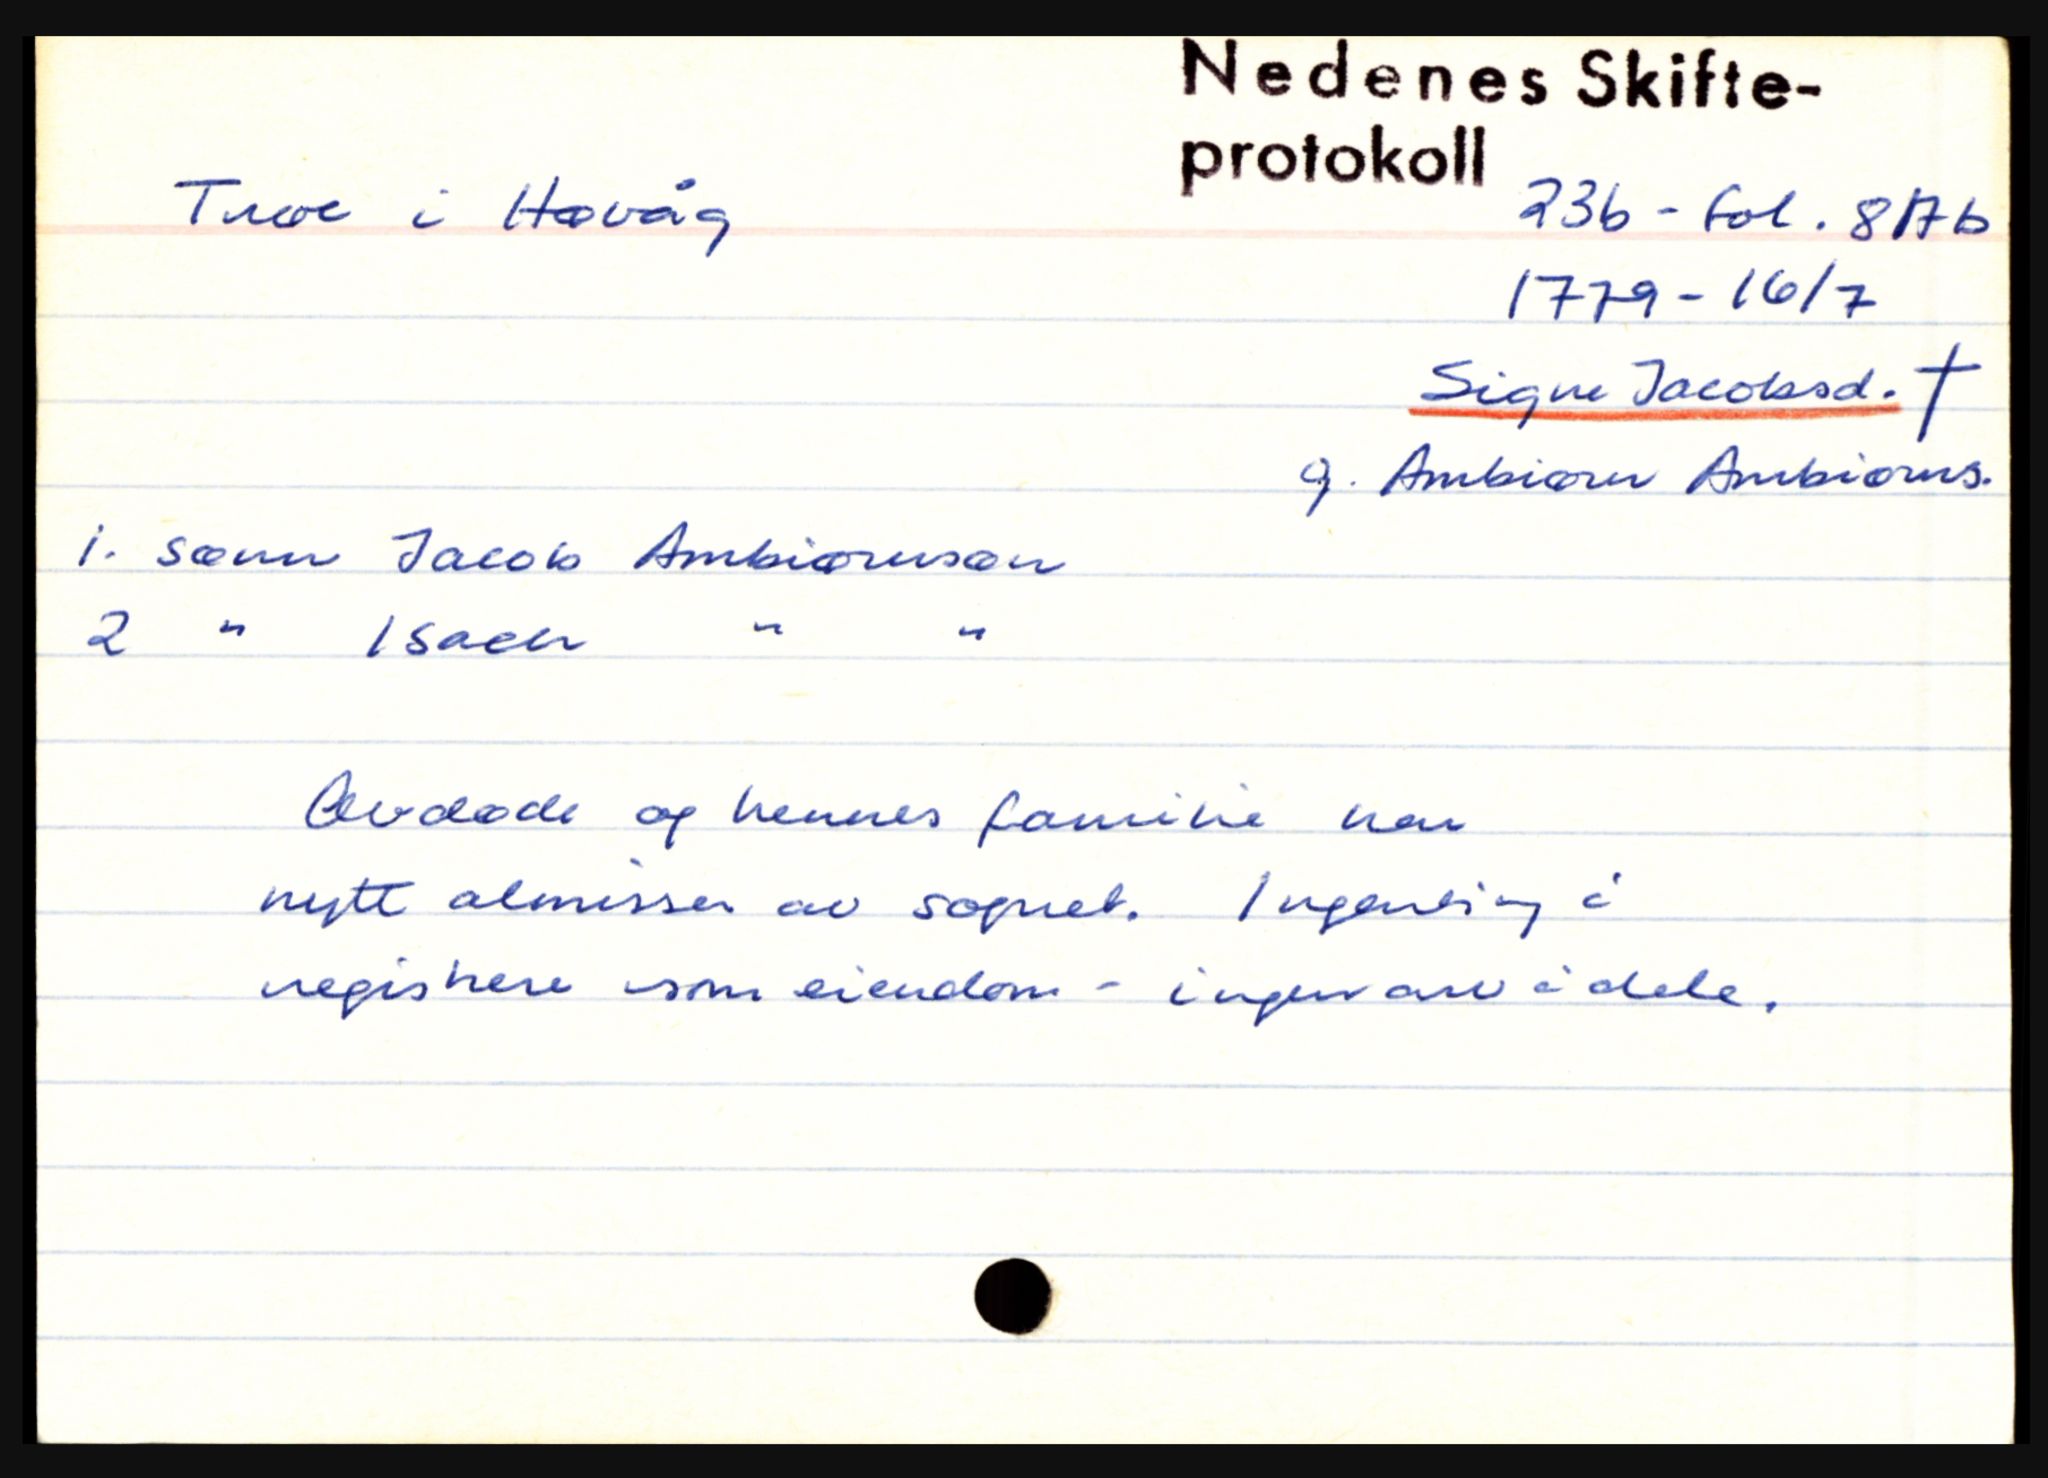 Nedenes Skifte-
protokoll
Trøe i Høvåg
23b - fol. 817b
1779 - 16/7
Signe Jacobsd. †
g. Ambiørn Ambiørns.
1. sønn Jacob Ambiørnsøn
2 " Isach " "
Avdøde og hennes familie har
nytt almisser av sognet. Ingenting å
registrere som eiendom - ingen arv å dele.